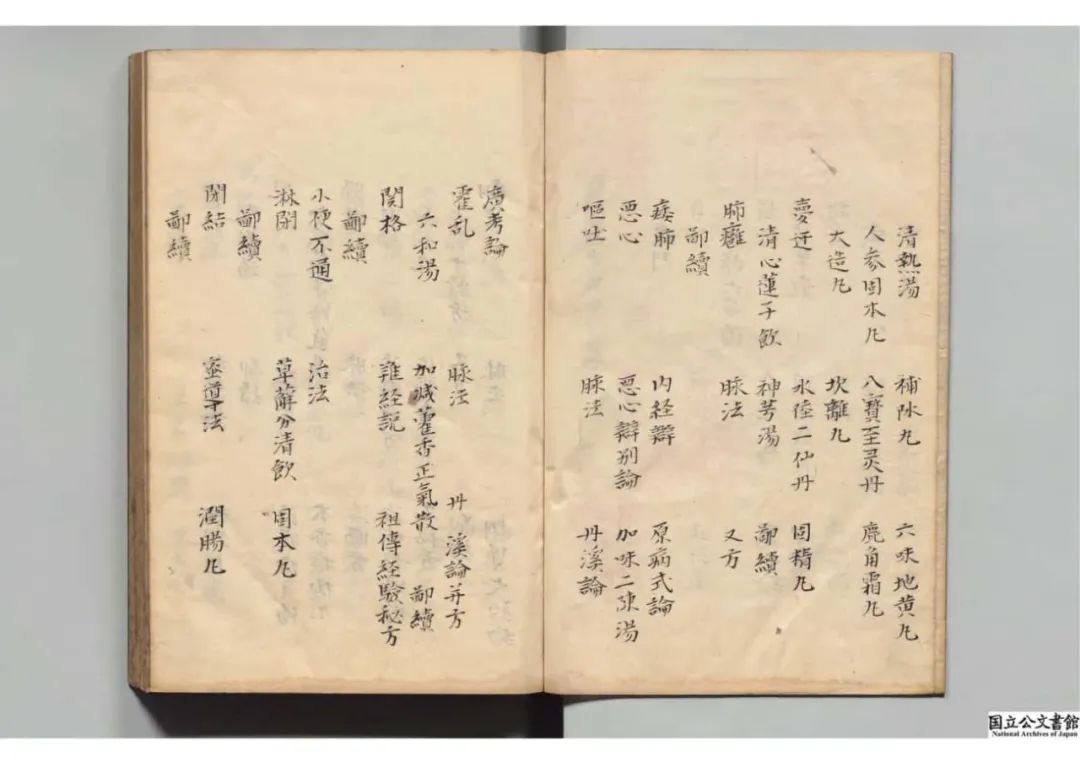 清熱湯 補陰丸 六味地黄丸
人參固本丸 八寶至灵丹 鹿角霜丸
大造丸 坎離丸
夣遗 水陸二仙丹 固精丸
清心蓮子飲 神芎湯 鄙續
肺癰 脉法 又方
鄙續
痿肺 内经辯 原病式論
惡心 惡心辯别論 加味二陳湯
嘔吐 脉法 丹溪論
廣考論
霍乱 脉法 丹溪論并方
六和湯 加减藿香正氣散 鄙續
関格 難经説 祖傳経驗秘方
鄙續
小便不通 治法
淋閉 萆薢分清飲 固本丸
鄙續
閉結 蜜導法 潤腸丸
鄙續
国立公文書館
National Archives of Japan